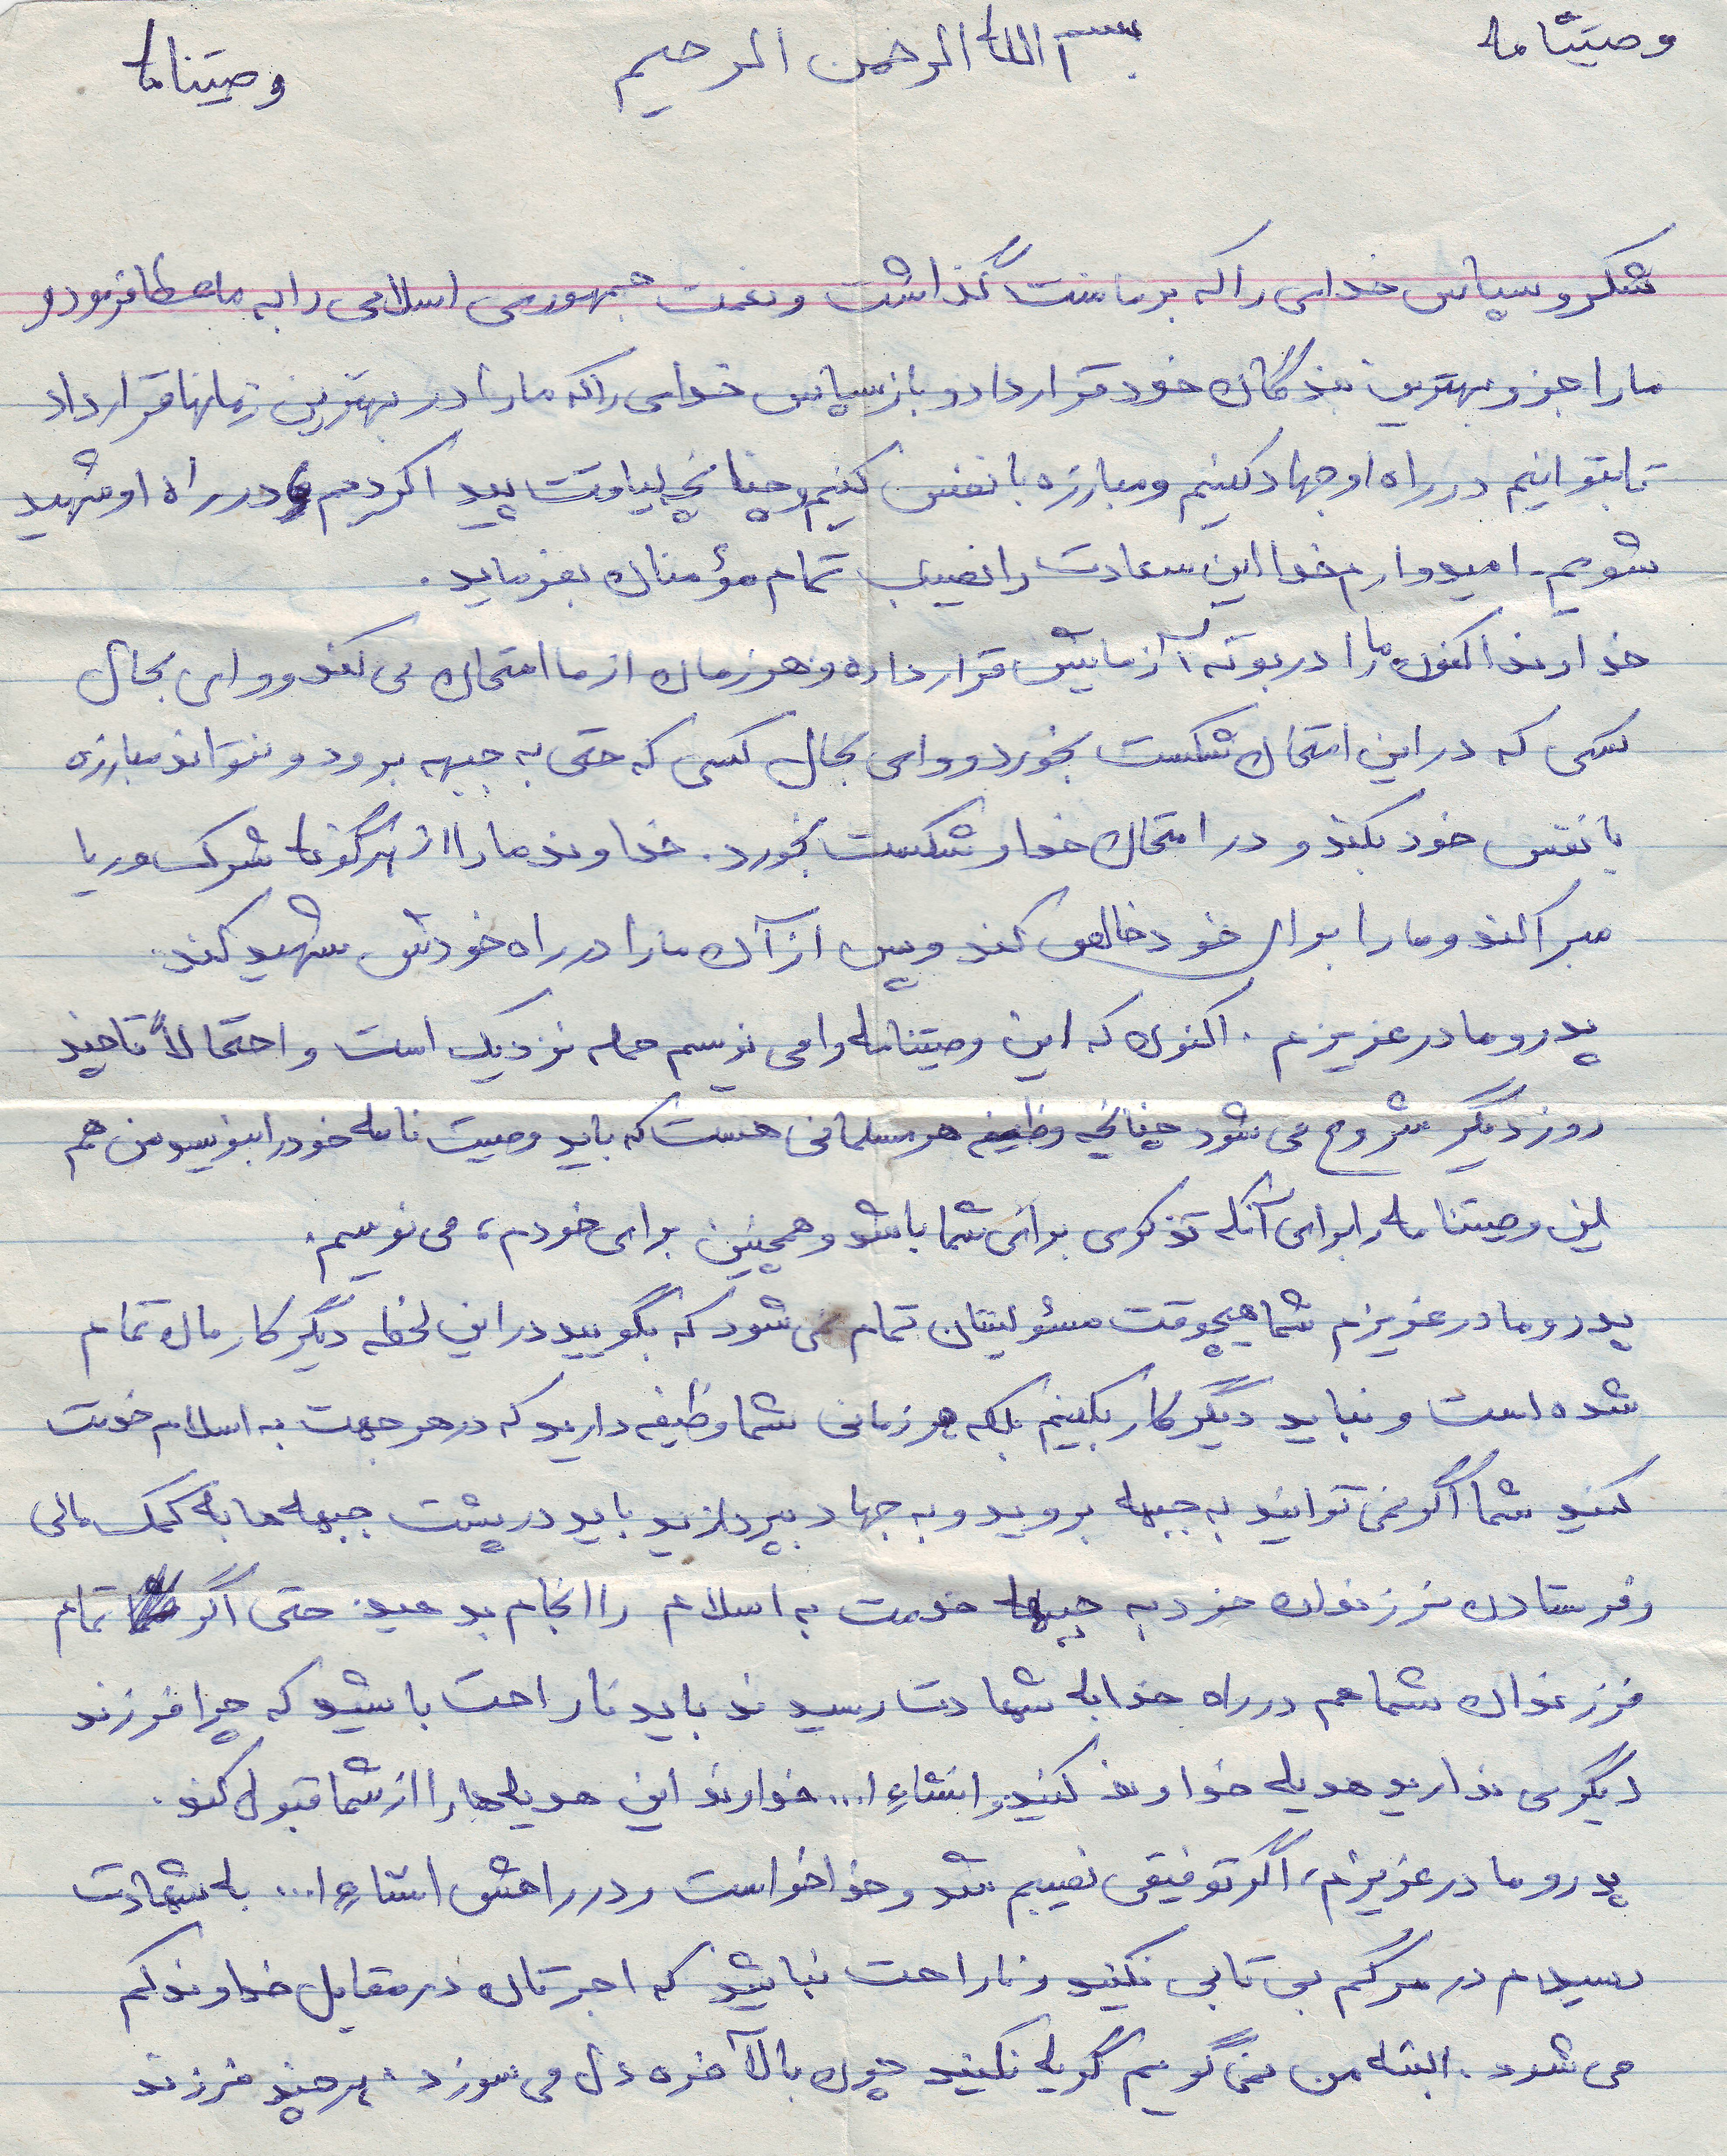 وصیتنامه بسم الله الرحمن الرحیم وصیتنامه
شکر و سپاس خدای را که بر ما منت گذاشت و نعمت جمهوری اسلامی را به ما عطا فرمود و
ما را جزو بهترین بندگان خود قرار داد و باز سپاس خدای را که ما را در بهترین زمانها قرار داد
تا بتوانیم در راه او جهاد کنیم و مبارزه با نفس کنیم و چنانچه لیاقت پیدا کردم در راه او شهید
شویم. امیدوارم خدا این سعادت را نصیب تمام مؤمنان بفرماید.
خداوند اکنون ما را در بوته آزمایش قرار داده و هر زمان از ما امتحان می کند و وای بحال
کسی که در این امتحان شکست بخورد و وای بحال کسی که حتی به جبهه برود و نتواند مبارزه
با نفس خود بکند و در امتحان خدا و شکست بخورد. خداوند ما را از هرگونه شرک و ریا
مبرا کند و ما را برای خود خالص کند و پس از آن ما را در راه خودش شهید کند.
پدر و مادر عزیزم. اکنون که این وصیتنامه را می نویسم حمله نزدیک است و احتمالاً تا چند
روز دیگر شروع می شود چنانچه وظیفه هر مسلمانی هست که باید وصیت نامه خود را بنویسد من هم
این وصیتنامه را برای آنکه تذکری برای شما باشد و همچنین برای خودم، می نویسم.
پدر و مادر عزیزم شما هیچوقت مسئولیتتان تمام نمی شود که بگویید در این لحظه دیگر کارمان تمام
شده است و نباید دیگر کار بکنیم بلکه هر زمانی شما وظیفه دارید که در هر جهت به اسلام خدمت
کنید شما اگر نمی توانید به جبهه بروید و به جهاد بپردازید باید در پشت جبهه ها به کمک مالی
و فرستادن فرزندان خود به جبهه خدمت به اسلام را انجام بدهید. حتی اگر تمام
فرزندان شما هم در راه خدا به شهادت رسیدند باید ناراحت باشید که چرا فرزند
دیگری ندارید هدیه خداوند کنید و انشاء ا... خداوند این هدیه ها را از شما قبول کند.
پدر و مادر عزیزم، اگر توفیقی نصیبم شد و خدا خواست و در راهش انشاء ا... به شهادت
رسیدم در مرگم بی تابی نکنید و ناراحت نباشید که اجرتان در مقابل خداوند کم
می شود. البته من نمی گویم گریه نکنید چون بالآخره دل می سوزد، هر چند فرزند